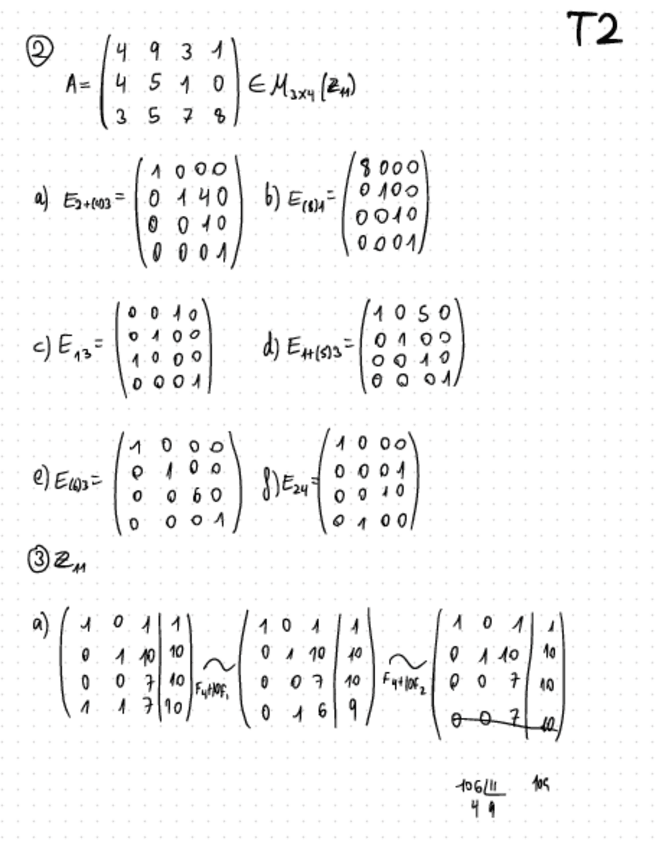 T2
② A = ( 4 9 3 1
4 5 1 0
3 5 7 8 ) ∈ M₃ₓ₄ (ℤ₁₁)
a) E₂₊₍₄₎₃ = ( 1 0 0 0
0 1 4 0
0 0 1 0
0 0 0 1 )
b) E₍₈₎₁ = ( 8 0 0 0
0 1 0 0
0 0 1 0
0 0 0 1 )
c) E₁₃ = ( 0 0 1 0
0 1 0 0
1 0 0 0
0 0 0 1 )
d) E₁₊₍₅₎₃ = ( 1 0 5 0
0 1 0 0
0 0 1 0
0 0 0 1 )
e) E₍₆₎₃ = ( 1 0 0 0
0 1 0 0
0 0 6 0
0 0 0 1 )
f) E₂₄ = ( 1 0 0 0
0 0 0 1
0 0 1 0
0 1 0 0 )
③ ℤ₁₁
a) ( 1 0 1 | 1
0 1 10 | 10
0 0 7 | 10
1 1 7 | 10 )
~ F₄+10F₁
( 1 0 1 | 1
0 1 10 | 10
0 0 7 | 10
0 1 6 | 9 )
~ F₄+10F₂
( 1 0 1 | 1
0 1 10 | 10
0 0 7 | 10
0 0 7 | 10 )
106 | 11